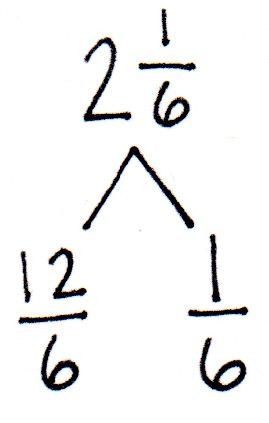 2 1/6
12/6 1/6